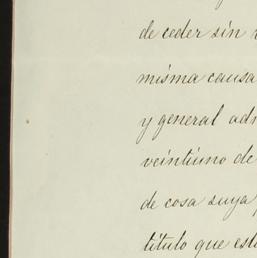 de ceder sin
misma causa
y general adm
veintiuno de
de cosa suya
título que est